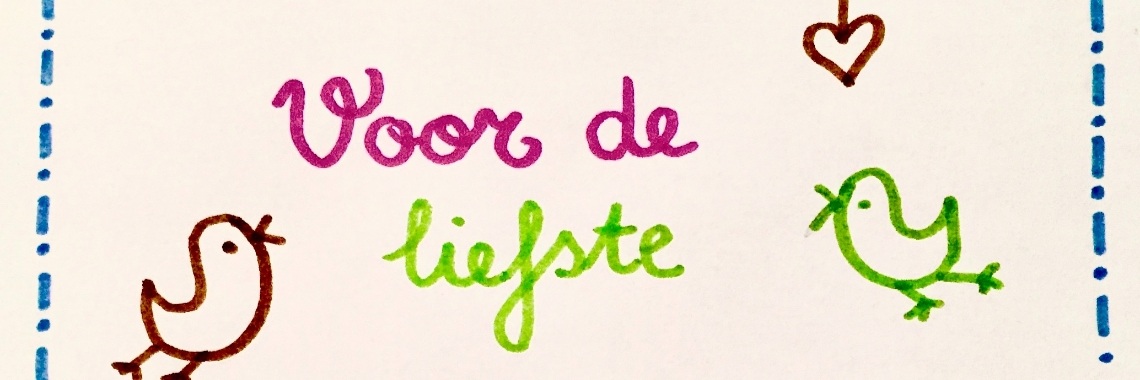 Voor de
liefste